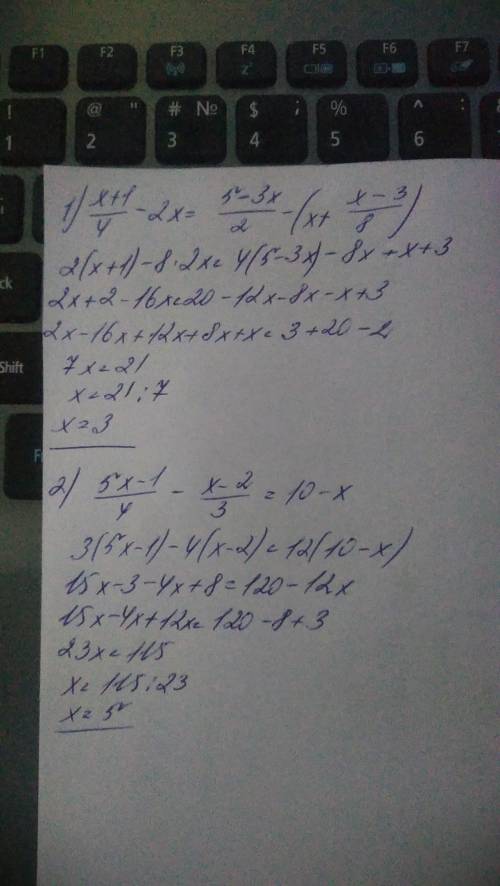 F1 F2 F3 F4 F5 F6 F7
! @ " # № $ ; % ^ :
1 2 3 4 5 6
Shift
1) (x+1)/4 - 2x = (5-3x)/2 - (x + (x-3)/8)
2(x+1)-8·2x=4(5-3x)-8x+x+3
2x+2-16x=20-12x-8x-x+3
2x-16x+12x+8x+x=3+20-2
7x=21
x=21:7
x=3
2) (5x-1)/4 - (x-2)/3 = 10-x
3(5x-1)-4(x-2)=12(10-x)
15x-3-4x+8=120-12x
15x-4x+12x=120-8+3
23x=115
x=115:23
x=5